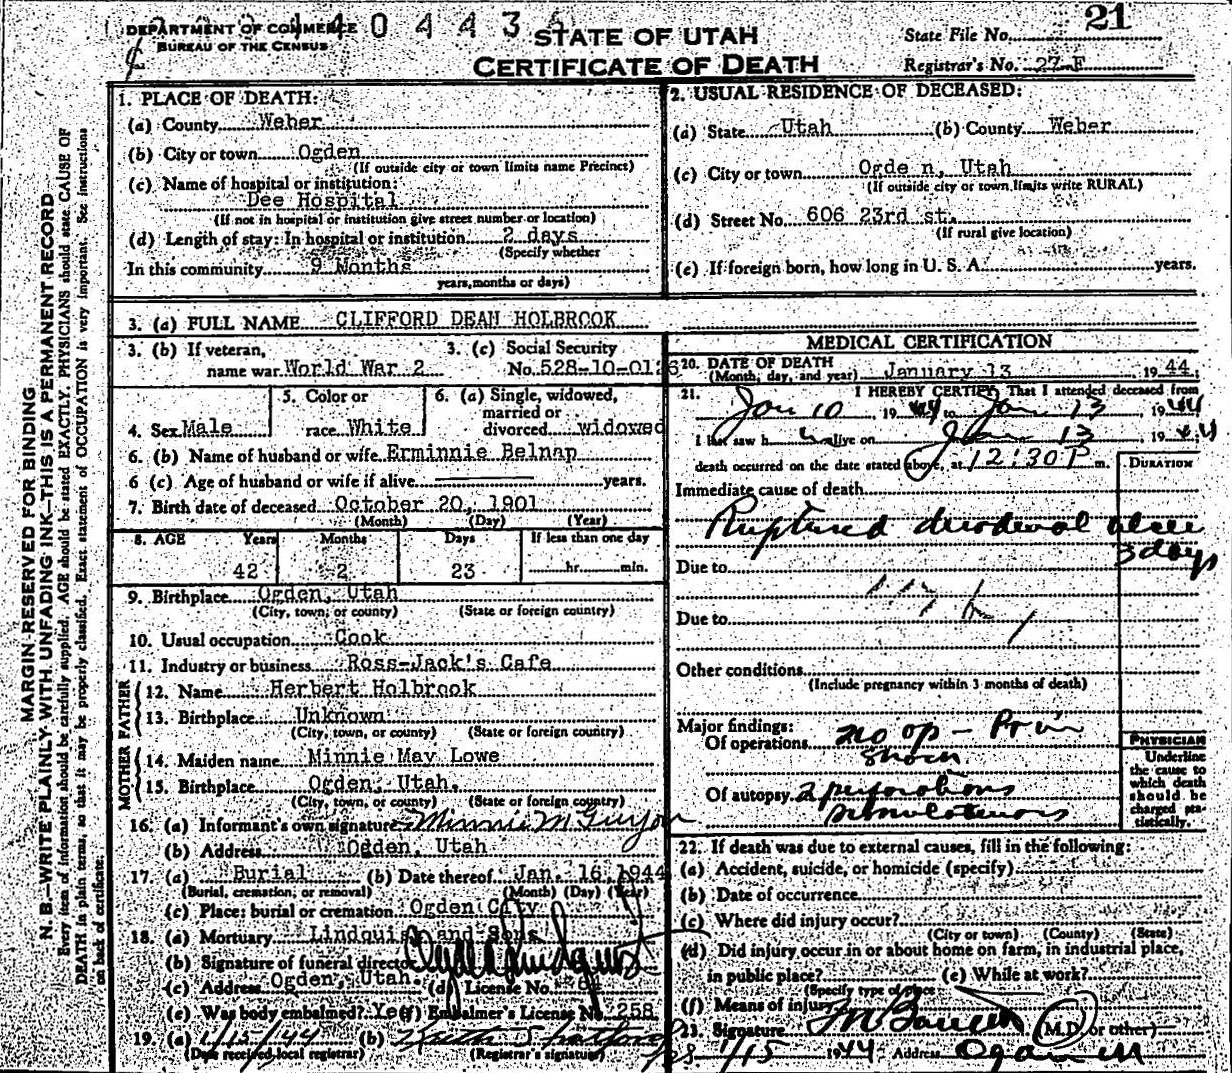 DEPARTMENT OF COMMERCE
BUREAU OF THE CENSUS
0 4 4 3
STATE OF UTAH
CERTIFICATE OF DEATH
State File No. 21
Registrar's No. 27-F
MARGIN RESERVED FOR BINDING
N. B.—WRITE PLAINLY, WITH UNFADING INK—THIS IS A PERMANENT RECORD
Every item of information should be carefully supplied. AGE should be stated EXACTLY. PHYSICIANS should state CAUSE OF
DEATH in plain terms, so that it may be properly classified. Exact statement of OCCUPATION is very important. See instructions
on back of certificate.
1. PLACE OF DEATH:
(a) County Weber
(b) City or town Ogden
(If outside city or town limits name Precinct)
(c) Name of hospital or institution:
Dee Hospital
(If not in hospital or institution give street number or location)
(d) Length of stay: In hospital or institution 2 days
(Specify whether
In this community 9 Months
years, months or days)
2. USUAL RESIDENCE OF DECEASED:
(a) State Utah (b) County Weber
(c) City or town Ogde n, Utah
(If outside city or town limits write RURAL)
(d) Street No. 606 23rd st.
(If rural give location)
(e) If foreign born, how long in U. S. A. years.
3. (a) FULL NAME CLIFFORD DEAN HOLBROOK
3. (b) If veteran,
name war World War 2
3. (c) Social Security
No. 528-10-0126
4. Sex Male
5. Color or
race White
6. (a) Single, widowed,
married or
divorced widowed
6. (b) Name of husband or wife Erminnie Belnap
6 (c) Age of husband or wife if alive years.
7. Birth date of deceased October 20, 1901
(Month) (Day) (Year)
8. AGE Years Months Days If less than one day
42 2 23 hr. min.
9. Birthplace Ogden, Utah
(City, town, or county) (State or foreign country)
10. Usual occupation Cook
11. Industry or business Ross-Jack's Cafe
FATHER
12. Name Herbert Holbrook
13. Birthplace Unknown
(City, town, or county) (State or foreign country)
MOTHER
14. Maiden name Minnie May Lowe
15. Birthplace Ogden, Utah.
(City, town, or county) (State or foreign country)
16. (a) Informant's own signature Minnie M Guyon
(b) Address Ogden, Utah
17. (a) Burial (b) Date thereof Jan. 16, 1944
(Burial, cremation, or removal) (Month) (Day) (Year)
(c) Place: burial or cremation Ogden City
18. (a) Mortuary Lindquist and Sons
(b) Signature of funeral director
(c) Address Ogden, Utah. (d) License No.
(e) Was body embalmed? Yes (f) Embalmer's License No. 258
19. (a) 1/15/44 (b)
(Date received local registrar) (Registrar's signature)
MEDICAL CERTIFICATION
20. DATE OF DEATH
(Month, day, and year) January 13 1944
21. I HEREBY CERTIFY, That I attended deceased from
Jan 10, 1944 to Jan 13 1944
I last saw h alive on Jan 13 1944
death occurred on the date stated above, at 12:30 P m.
DURATION
Immediate cause of death
Ruptured duodenal ulcer
3 days
Due to
Due to
Other conditions
(Include pregnancy within 3 months of death)
Major findings:
Of operations no op —
Of autopsy 2 perforations
PHYSICIAN
Underline
the cause to
which death
should be
charged sta-
tistically.
22. If death was due to external causes, fill in the following:
(a) Accident, suicide, or homicide (specify)
(b) Date of occurrence
(c) Where did injury occur?
(City or town) (County) (State)
(d) Did injury occur in or about home on farm, in industrial place,
in public place? (e) While at work?
(Specify type of place
(f) Means of injury
23. Signature (M.D. or other)
1/15 1944 Address Ogden